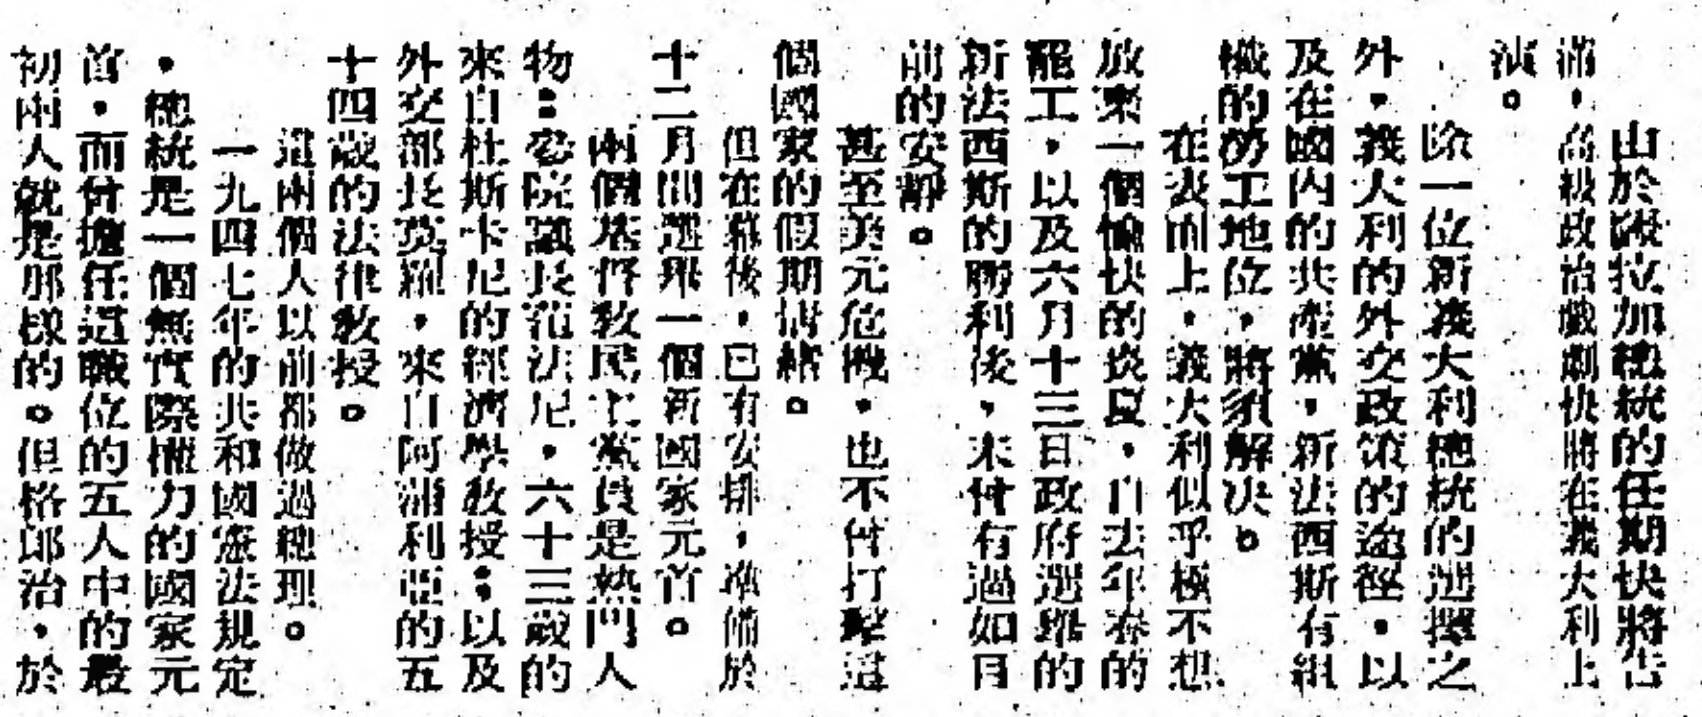 由於薩拉加總統的任期快將告
滿，高級政治戲劇快將在義大利上
演。
除一位新義大利總統的選擇之
外，義大利的外交政策的途徑，以
及在國內的共產黨，新法西斯有組
織的勞工地位，將須解决。
在表面上，義大利似乎極不想
放棄一個愉快的炎夏，自去年春的
罷工，以及六月十三日政府選舉的
新法西斯的勝利後，未曾有過如目
前的安靜。
甚至美元危機，也不曾打擊這
個國家的假期情緒。
但在幕後，已有安排，準備於
十二月間選舉一個新國家元首。
兩個基督教民主黨員是熱門人
物：參院議長范法尼，六十三歲的
來自杜斯卡尼的經濟學教授；以及
外交部長莫羅，來自阿浦利亞的五
十四歲的法律教授。
這兩個人以前都做過總理。
一九四七年的共和國憲法規定
，總統是一個無實際權力的國家元
首，而曾擔任這職位的五人中的最
初兩人就是那樣的。但格郎治，於